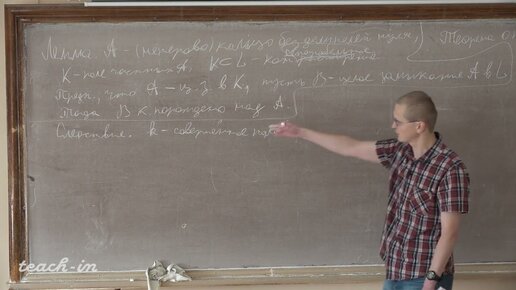 Лемма. A - (нетерово) кольцо без делителей нуля,
сепарабельное
K - поле частных A, K⊂L - кон. расширение
Предп., что A - ц. з. в K, пусть B - целое замыкание A в L
Тогда B к. порождено над A.
Следствие. k - совершенное
Теорема
teach-in